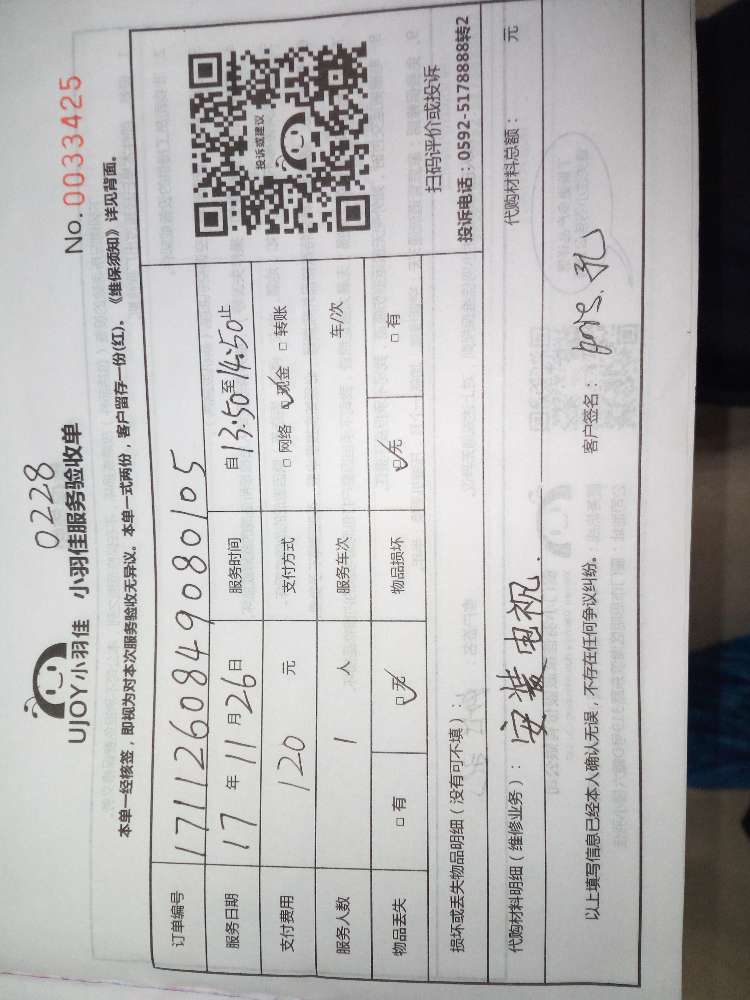 0228
UJOY小羽佳 小羽佳服务验收单
No.0033425
本单一经核签，即视为对本次服务验收无异议。本单一式两份，客户留存一份(红)。《维保须知》详见背面。
订单编号 1711260849080105
服务日期 17年11月26日 服务时间 自13:50至14:50止
支付费用 120 元 支付方式 □网络 ☑现金 □转账
服务人数 1 人 服务车次 车/次
物品丢失 □有 ☑无 物品损坏 ☑无 □有
投诉或建议
扫码评价或投诉
投诉电话：0592-5178888转2
损坏或丢失物品明细（没有可不填）：
代购材料明细（维修业务）：安装电视.
代购材料总额： 元
以上填写信息已经本人确认无误，不存在任何争议纠纷。
客户签名： 孔